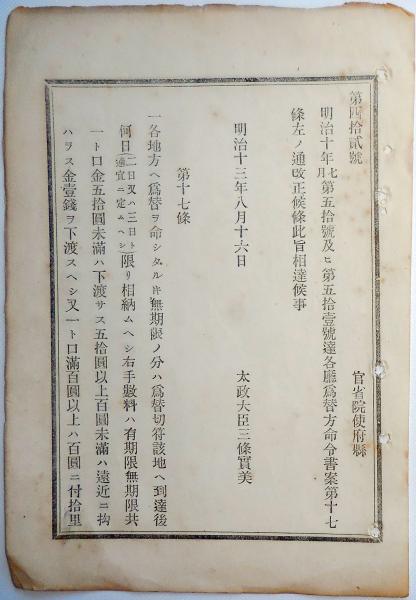 第四拾貳號
官省院使府縣
明治十年七月第五拾號及ヒ第五拾壹號達各廳爲替方命令書案第十七
條左ノ通改正候條此旨相達候事
明治十三年八月十六日
太政大臣三條實美
第十七條
一各地方ヘ爲替ヲ命シタルキ無期限ノ分ハ爲替切符該地ヘ到達後
何日(二日又ハ三日ト適宜ニ定ムヘシ)限リ相納ムヘシ右手數料ハ有期限無期限共
一ト口金五拾圓未滿ハ下渡サス五拾圓以上百圓未滿ハ遠近ニ拘
ハラス金壹錢ヲ下渡スヘシ又一ト口滿百圓以上ハ百圓ニ付拾里